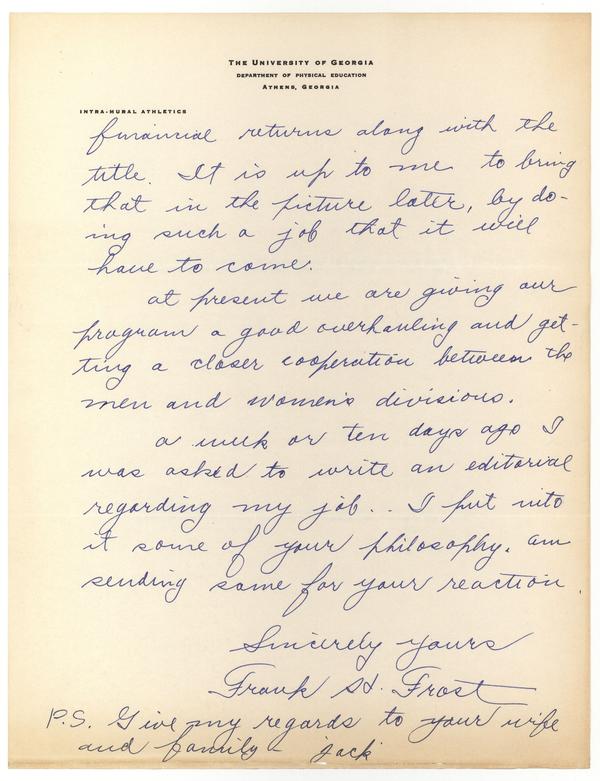 THE UNIVERSITY OF GEORGIA
DEPARTMENT OF PHYSICAL EDUCATION
ATHENS, GEORGIA
INTRA-MURAL ATHLETICS
financial returns along with the
title. It is up to me to bring
that in the picture later, by do-
ing such a job that it will
have to come.
at present we are giving our
program a good overhauling and get-
ting a closer cooperation between the
men and women's divisions.
a week or ten days ago I
was asked to write an editorial
regarding my job.. I put into
it some of your philosophy. am
sending same for your reaction.
Sincerely yours
Frank H. Frost
P.S. Give my regards to your wife
and family - Jack